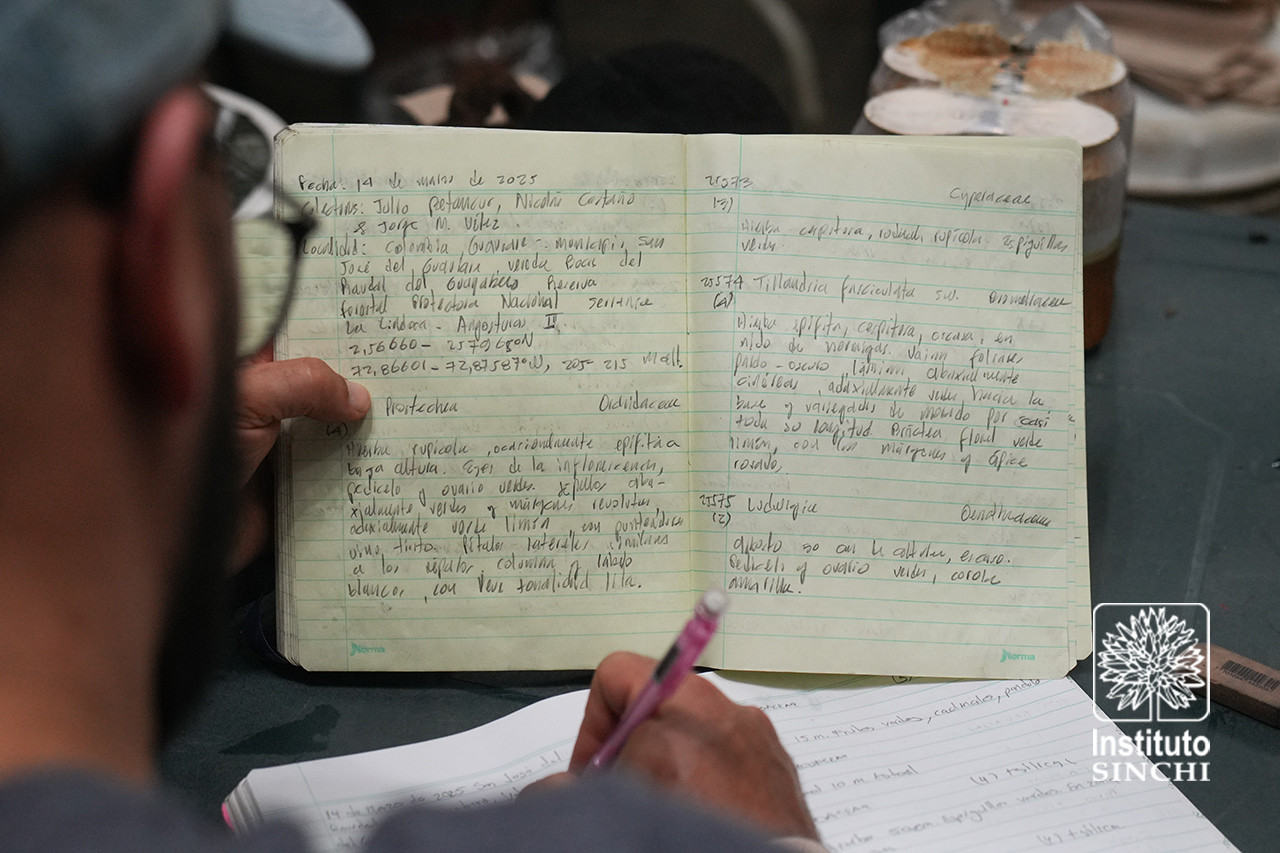 Fecha: 14 de marzo de 2025
Colectores: Julio Betancur, Nicolás Castaño
& Jorge M. Vélez.
Localidad: Colombia, Guaviare, municipio San
José del Guaviare, vereda Bocas del
Raudal del Guayabero, Reserva
Forestal Protectora Nacional Serranía
La Lindosa - Angosturas II.
2,56660 - 2,57968°N
72,86601 - 72,87587°W, 205- 215 m alt.
Prostechea Orchidaceae
(4)
Hierba rupícola, ocasionalmente epífita a
baja altura. Ejes de la inflorescencia,
pedicelo y ovario verdes. Sépalos aba-
xialmente verdes y márgenes revolutos,
adaxialmente verde limón, con punteaduras
vino tinto. Pétalos laterales similares
a los sépalos, columna y labelo
blancos, con leve tonalidad lila.
Norma
25573 Cyperaceae
(3)
Hierba cespitosa, rupícola. Espiguillas
verdes.
25574 Tillandsia fasciculata Sw. Bromeliaceae
(4)
Hierba epífita, cespitosa, escasa, en
nido de hormigas. Vainas foliares
pardo-oscuro, láminas abaxialmente
cinéreas, adaxialmente verdes hacia la
base y variegadas de morado por casi
toda su longitud. Bráctea floral verde
limón, con los márgenes y ápice
rosados.
25575 Ludwigia Onagraceae
(2)
Arbusto 50 cm de altura, escaso.
Pedicelo y ovario verdes, corola
amarilla.
Norma
14 de Marzo de 2025 San José del
15 m. Frutos verdes,
10 m
(4) + sílica
(4) + sílica
Instituto
SINCHI